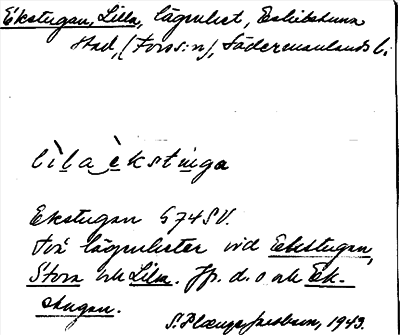 Ekstugan, Lilla, lägenhet, Eskilstuna
stad, (Fors s:n), Södermanlands l.
lìla èkstuga
Ekstugan G74SV.
Två lägenheter vid Ekstugan,
Stora och Lilla. Jfr. d. o. och Ek-
stugan.
S. Plænge Jacobson, 1943.